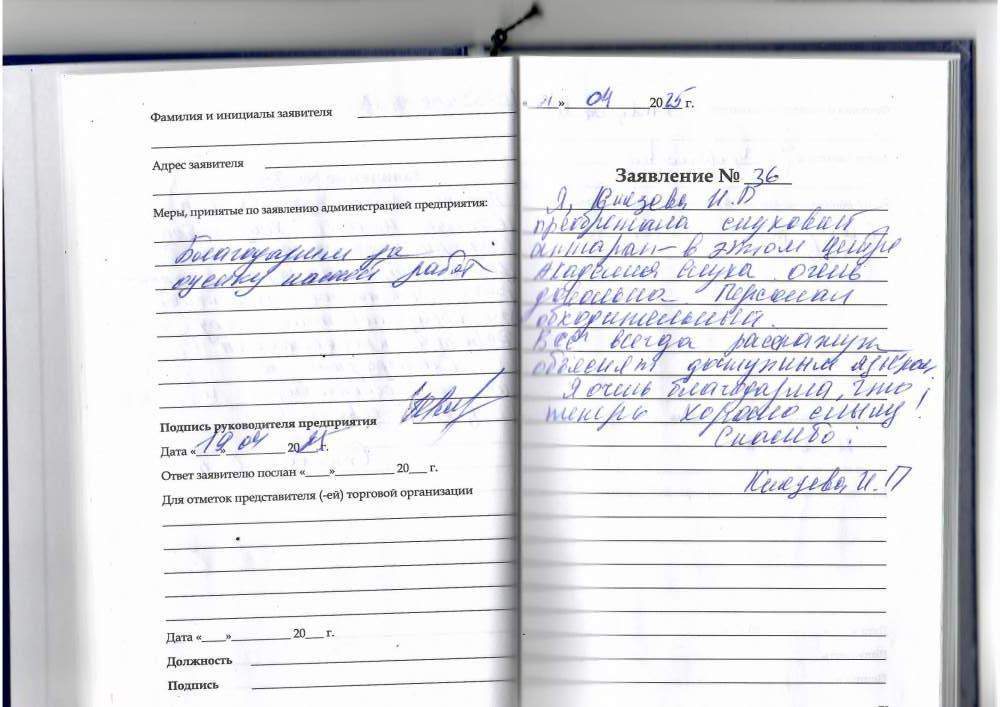 Фамилия и инициалы заявителя
Адрес заявителя
Меры, принятые по заявлению администрацией предприятия:
Благодарим за
оценку нашей работ
Подпись руководителя предприятия
Дата «19» 04 2025 г.
Ответ заявителю послан «____»__________ 20___ г.
Для отметок представителя (-ей) торговой организации
Дата «____»__________ 20___ г.
Должность
Подпись
04 2025 г.
Заявление № 36
Я, Князева И.П
преобретала слуховой
аппарат в этом центре
Академия слуха очень
довольна. Персонал
обходительный.
Все всегда расскажут
объяснят доступным языком,
Я очень благодарна, что
теперь хорошо слышу!
Спасибо!
Князева И.П